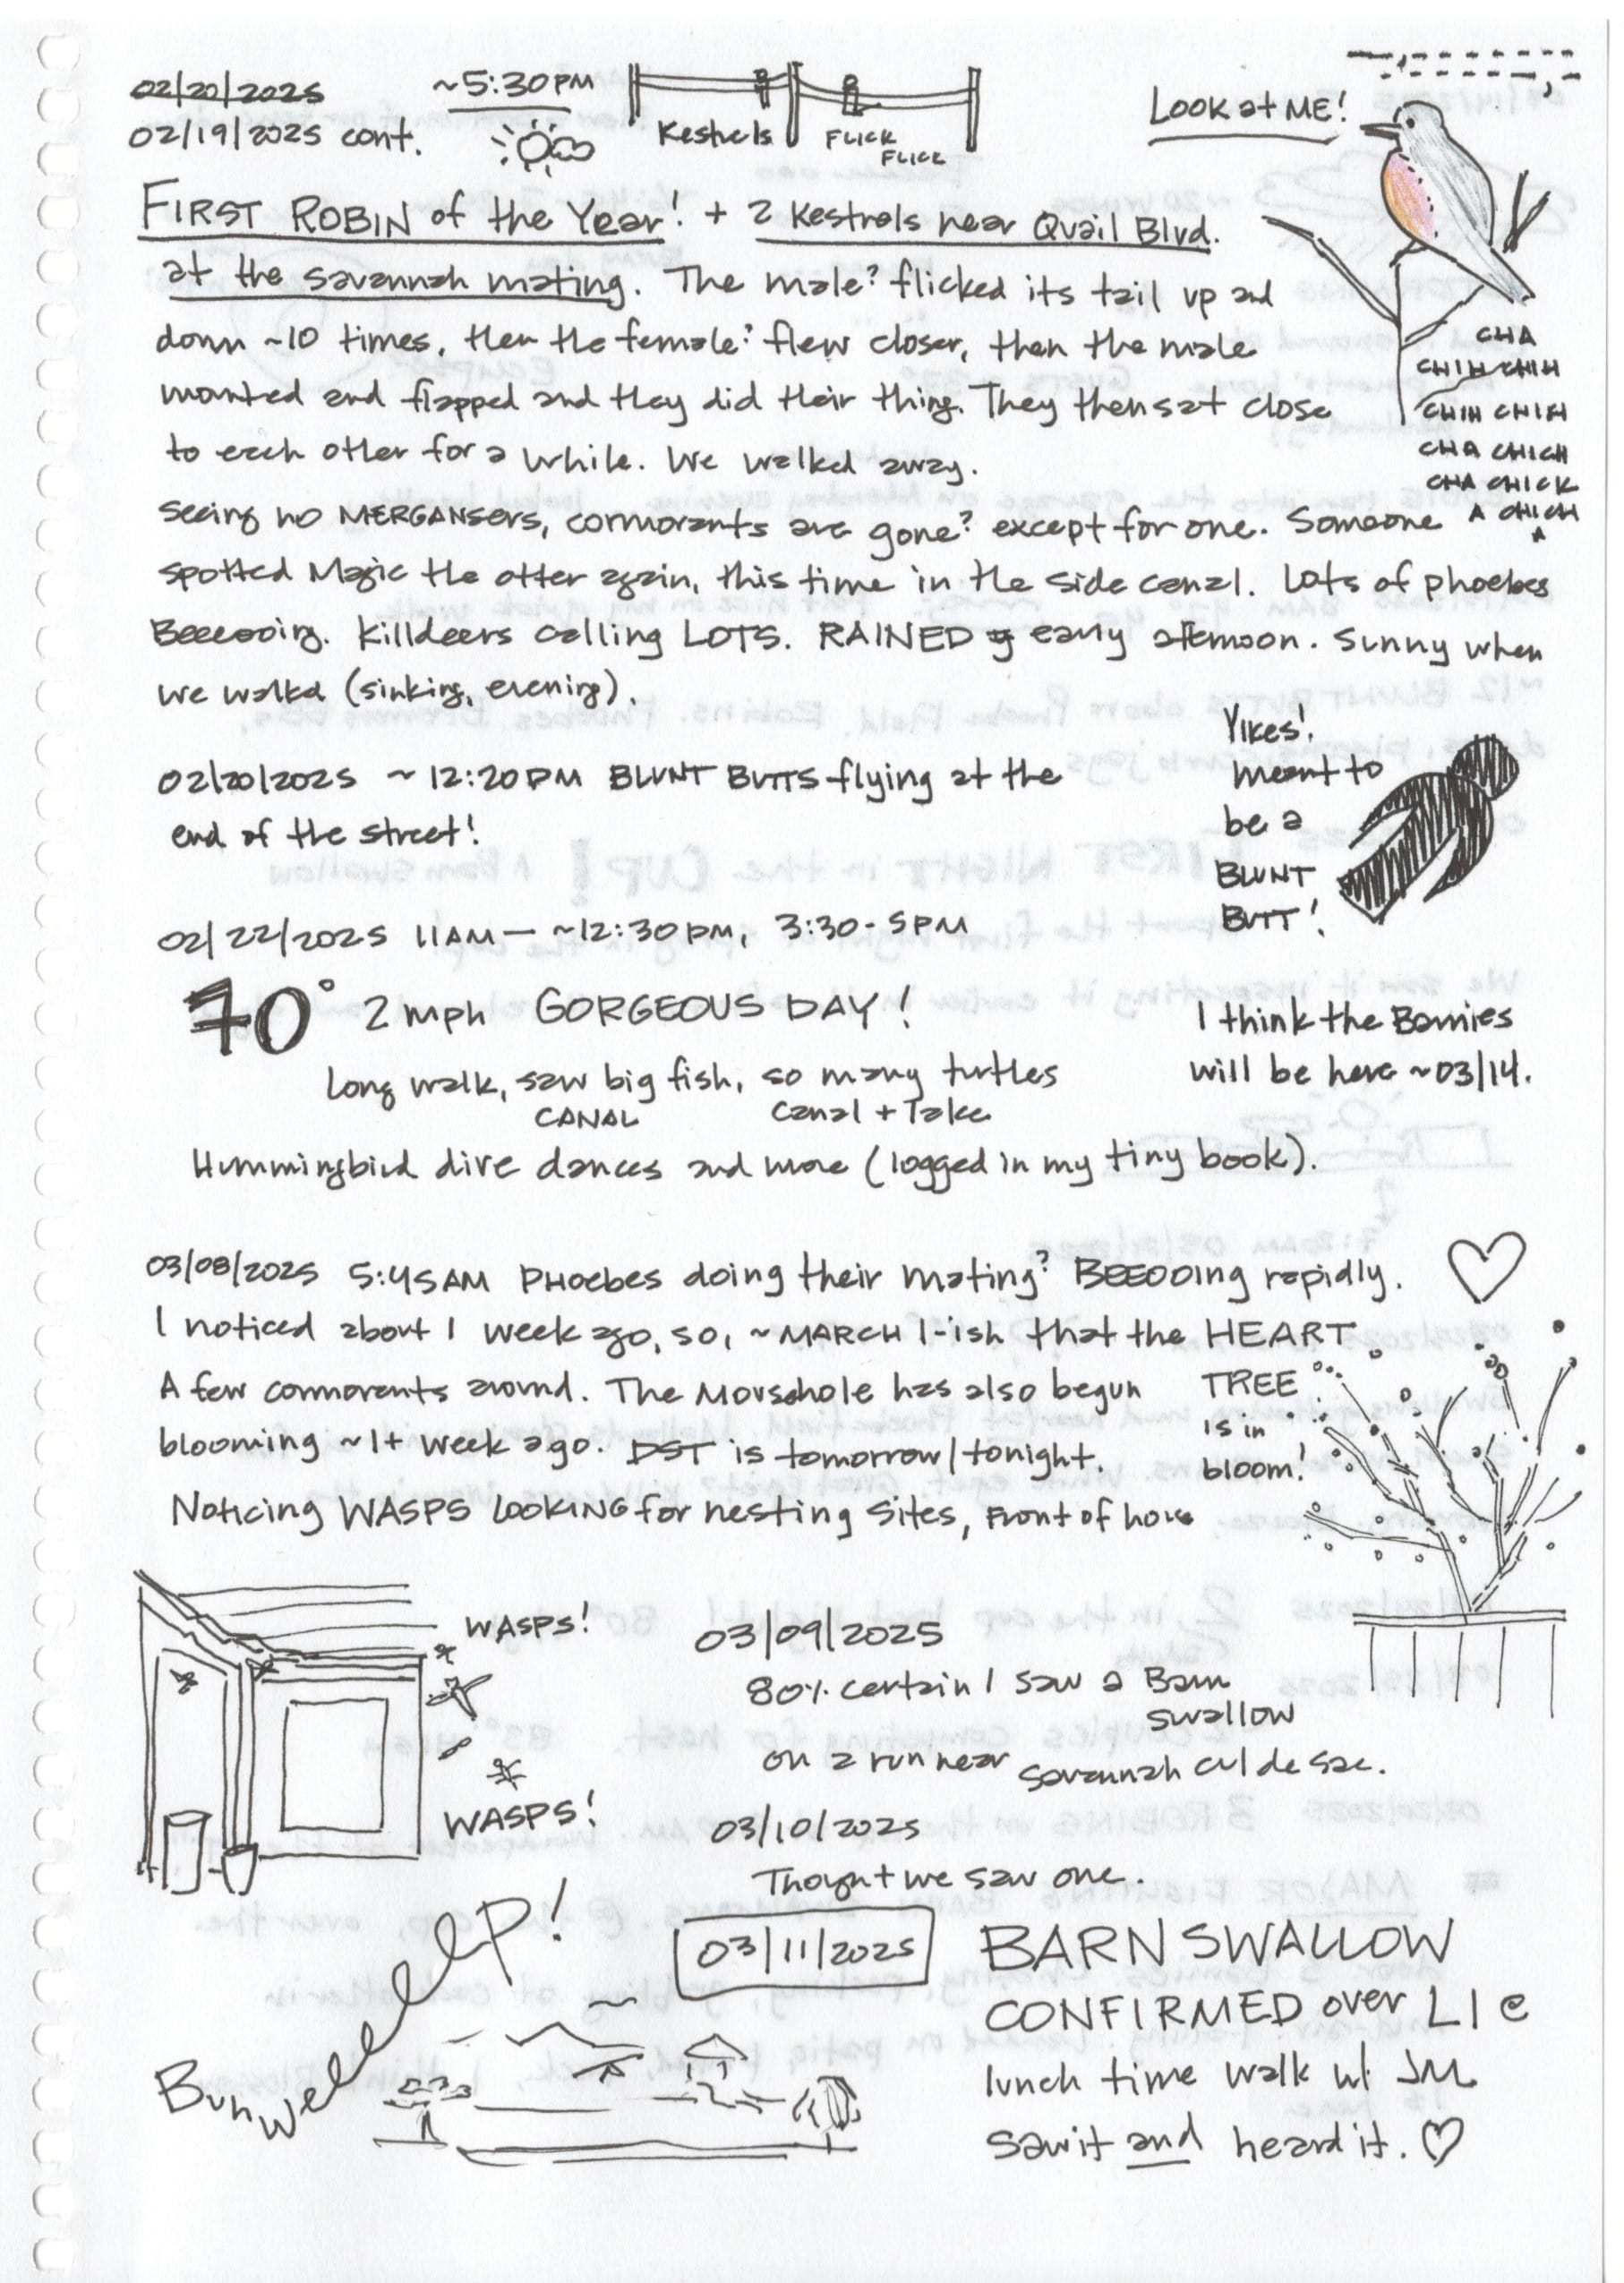 02/20/2025
~5:30PM
02/19/2025 cont.
Kestrels
FLICK
FLICK
Look at ME!
FIRST ROBIN of the Year! + 2 Kestrels near Quail Blvd.
at the savannah mating. The male? flicked its tail up and
down ~10 times, then the female? flew closer, then the male
mounted and flapped and they did their thing. They then sat close
to each other for a while. We walked away.
CHA
CHIH CHIH
CHIH CHIH
CHA CHICH
CHA CHICK
A CHICH
A
Seeing no MERGANSERS, cormorants are gone? except for one. Someone
spotted Magic the otter again, this time in the side canal. Lots of phoebes
Beeeooing. Killdeers calling LOTS. RAINED early afternoon. Sunny when
we walked (sinking, evening).
02/20/2025 ~12:20PM BLUNT BUTTS flying at the
end of the street!
Yikes!
meant to
be a
BLUNT
BUTT!
02/22/2025 11AM — ~12:30PM, 3:30-5PM
70° 2mph GORGEOUS DAY!
Long walk, saw big fish, so many turtles
CANAL canal + lake
Hummingbird dive dances and more (logged in my tiny book).
I think the Barnies
will be here ~03/14.
03/08/2025 5:45AM PHoebes doing their mating? BEEOOing rapidly.
I noticed about 1 week ago, so, ~MARCH 1-ish that the HEART
TREE
is in
bloom!
A few cormorants around. The Mousehole has also begun
blooming ~1+ week ago. DST is tomorrow/tonight.
Noticing WASPS LOOKING for nesting sites, front of house
WASPS!
WASPS!
03/09/2025
80% certain I saw a Barn
swallow
on a run near savannah cul de sac.
03/10/2025
Thought we saw one.
03/11/2025
BARN SWALLOW
CONFIRMED over L1 @
lunch time walk w/ JM
Saw it and heard it. ♡